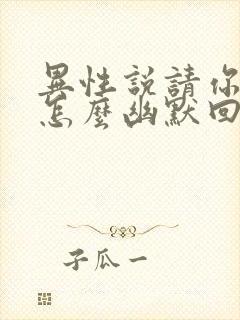 異性説請你
怎麼幽默回
子瓜一